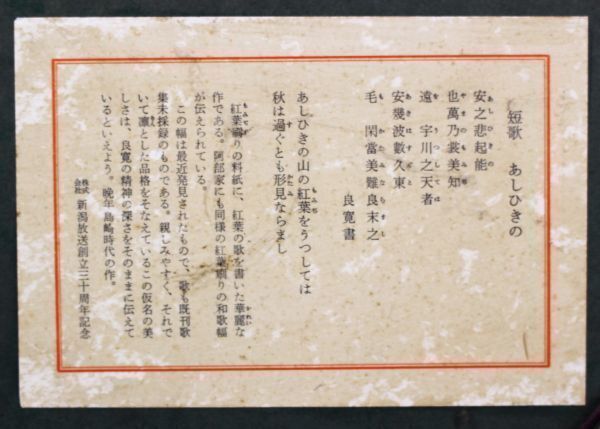 短歌 あしひきの
安之悲起能
也萬乃裳美知
遠 宇川之天者
安幾波數久東
毛 閑當美難良末之
良寛書
あしひきの山の紅葉をうつしては
秋は過ぐとも形見ならまし
紅葉摺りの料紙に、紅葉の歌を書いた華麗な
作である。阿部家にも同様の紅葉摺りの和歌幅
が伝えられている。
この幅は最近発見されたもので、歌も既刊歌
集未採録のものである。親しみやすく、それで
いて凛とした品格をそなえているこの仮名の美
しさは、良寛の精神の深さをそのままに伝えて
いるといえよう。晩年島崎時代の作。
株式会社 新潟放送創立三十周年記念